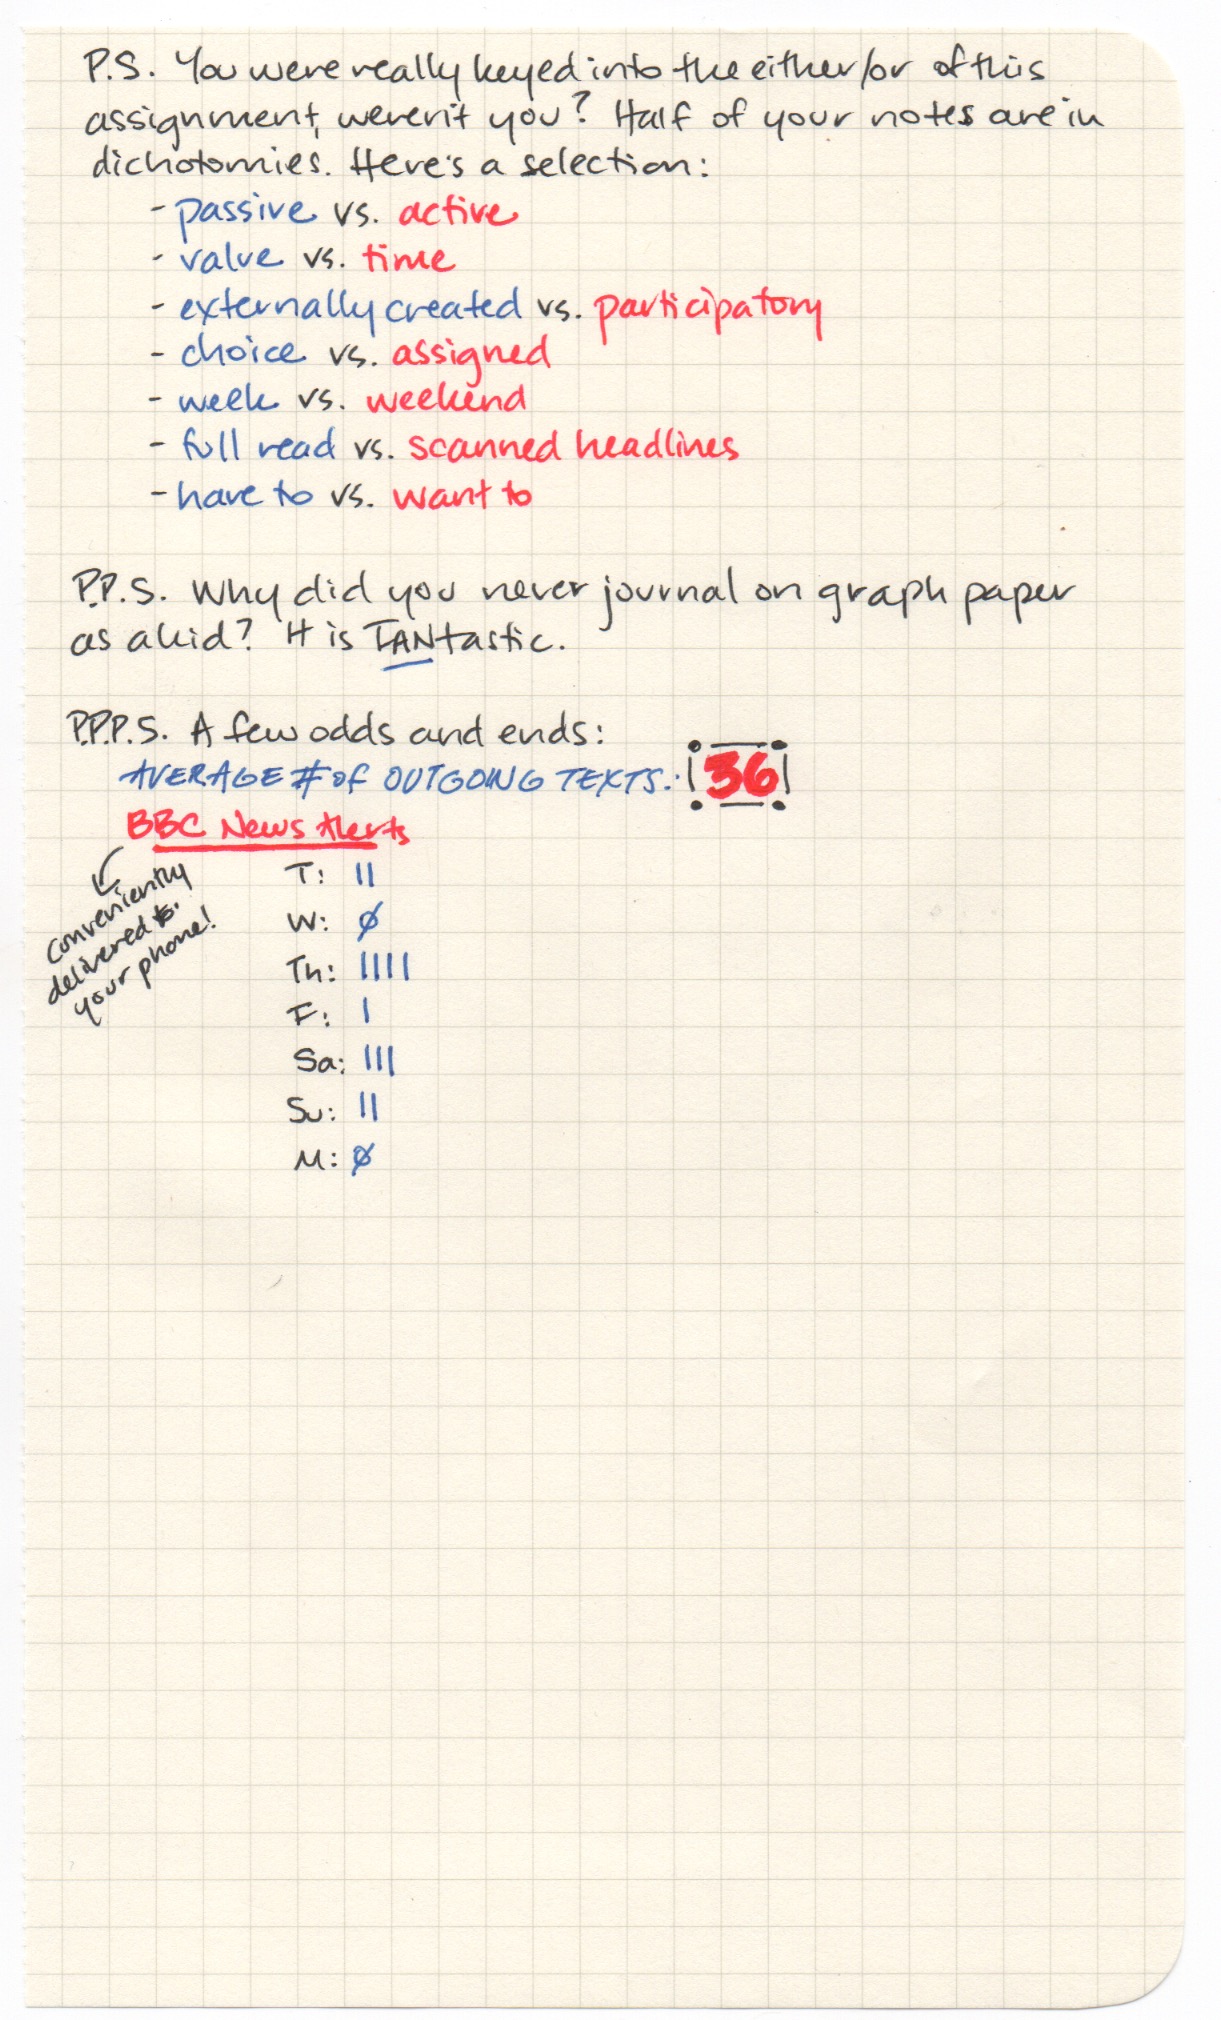 P.S. You were really keyed into the either/or of this
assignment, weren't you? Half of your notes are in
dichotomies. Here's a selection:
- passive vs. active
- value vs. time
- externally created vs. participatory
- choice vs. assigned
- week vs. weekend
- full read vs. scanned headlines
- have to vs. want to
P.P.S. Why did you never journal on graph paper
as a kid? It is FANtastic.
P.P.P.S. A few odds and ends:
AVERAGE # of OUTGOING TEXTS: 36
BBC News Alerts
conveniently
delivered to
your phone!
T: ||
W: ∅
Th: ||||
F: |
Sa: |||
Su: ||
M: ∅